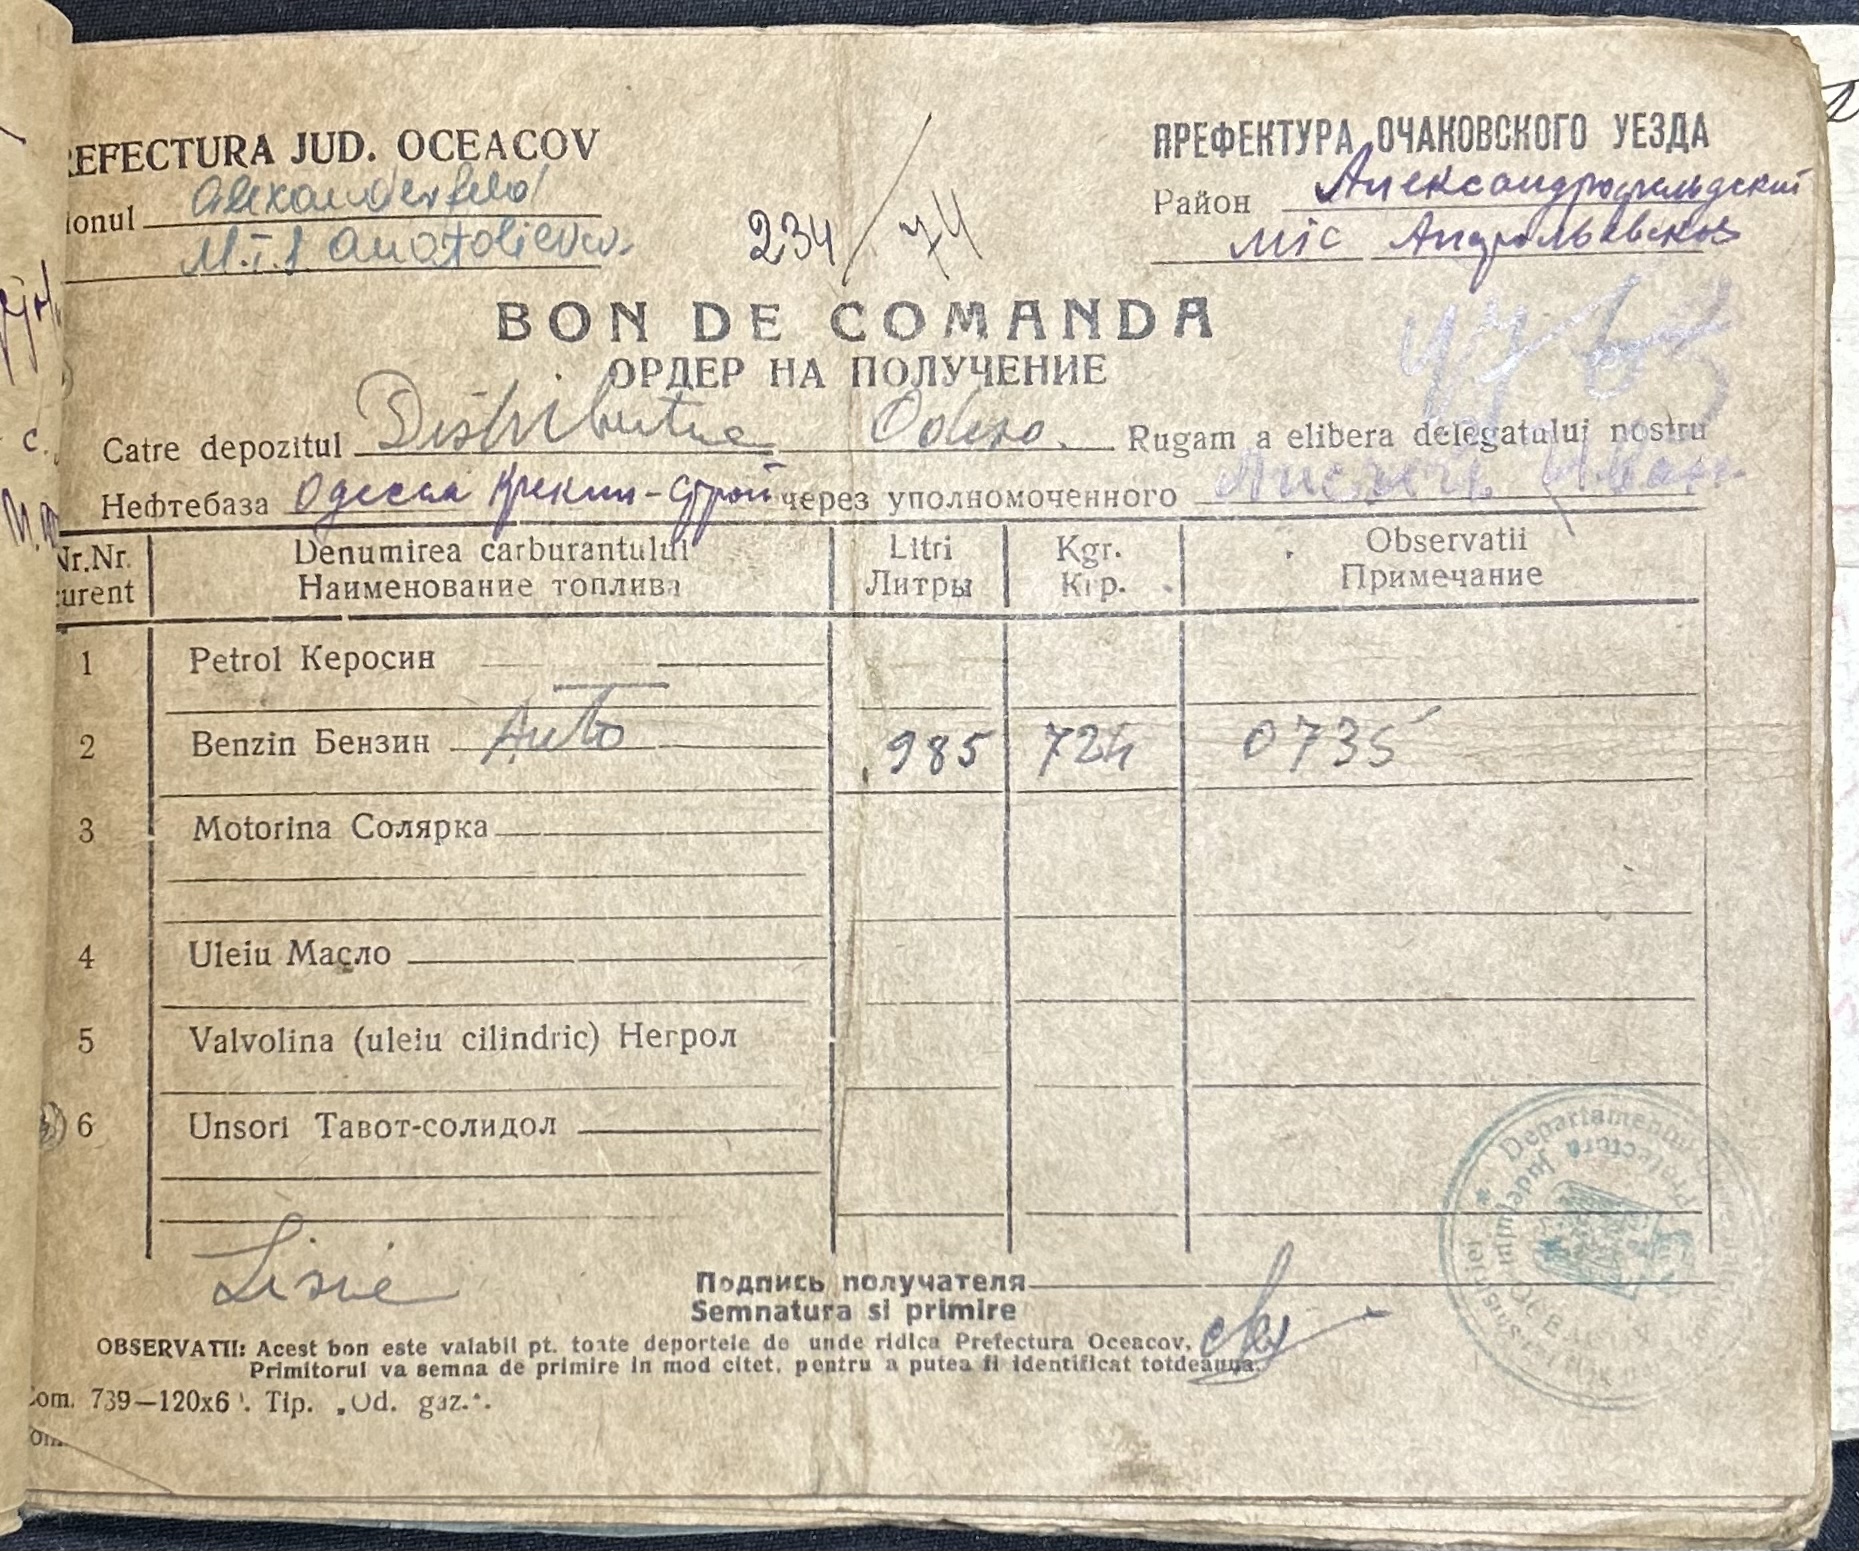 REFECTURA JUD. OCEACOV
ПРЕФЕКТУРА ОЧАКОВСКОГО УЕЗДА
ionul Alexanderfeld
Район Александрфельдский
234/74
BON DE COMANDA
ОРДЕР НА ПОЛУЧЕНИЕ
Catre depozitul Odesa. Rugam a elibera delegatului nostru
Нефтебаза Одесса Крекин-строй через уполномоченного
Nr.Nr. Denumirea carburantului Litri Kgr. Observatii
curent Наименование топлива Литры Кгр. Примечание
1 Petrol Керосин
2 Benzin Бензин Auto 985 724 0735
3 Motorina Солярка
4 Uleiu Масло
5 Valvolina (uleiu cilindric) Негрол
6 Unsori Тавот-солидол
Подпись получателя
Semnatura si primire
OBSERVATII: Acest bon este valabil pt. toate deportele de unde ridica Prefectura Oceacov.
Primitorul va semna de primire in mod citet, pentru a putea fi identificat totdeauna.
Com. 739—120x6 Tip. „Od. gaz.“.
Departamentul
Prefectura Judetului